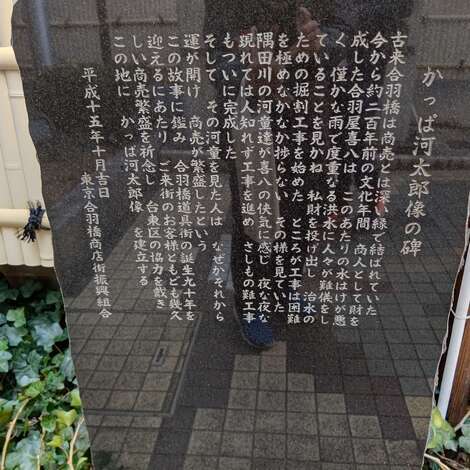 かっぱ河太郎像の碑
古来合羽橋は商売とは深い縁で結ばれていた
今から約二百年前の文化年間、商人として財を
成した合羽屋喜八は、このあたりの水はけが悪
く、僅かな雨で度重なる洪水に人々が難儀をし
ていることを見かね、私財を投げ出し、治水の
ための掘割工事を始めた。ところが工事は困難
を極めなかなか捗らない。その様を見ていた
隅田川の河童達が喜八の侠気に感じ、夜な夜な
現れては人知れず工事を進め、さしもの難工事
もついに完成した
そして、その河童を見た人は、なぜかそれから
運が開け、商売が繁盛したという
この故事に鑑み、合羽橋道具街の誕生九十年を
迎えるにあたり、ご来街のお客様ともども幾久
しい商売繁盛を祈念し、台東区の協力を戴き
この地に、かっぱ河太郎像、を建立する
平成十五年十月吉日
東京合羽橋商店街振興組合